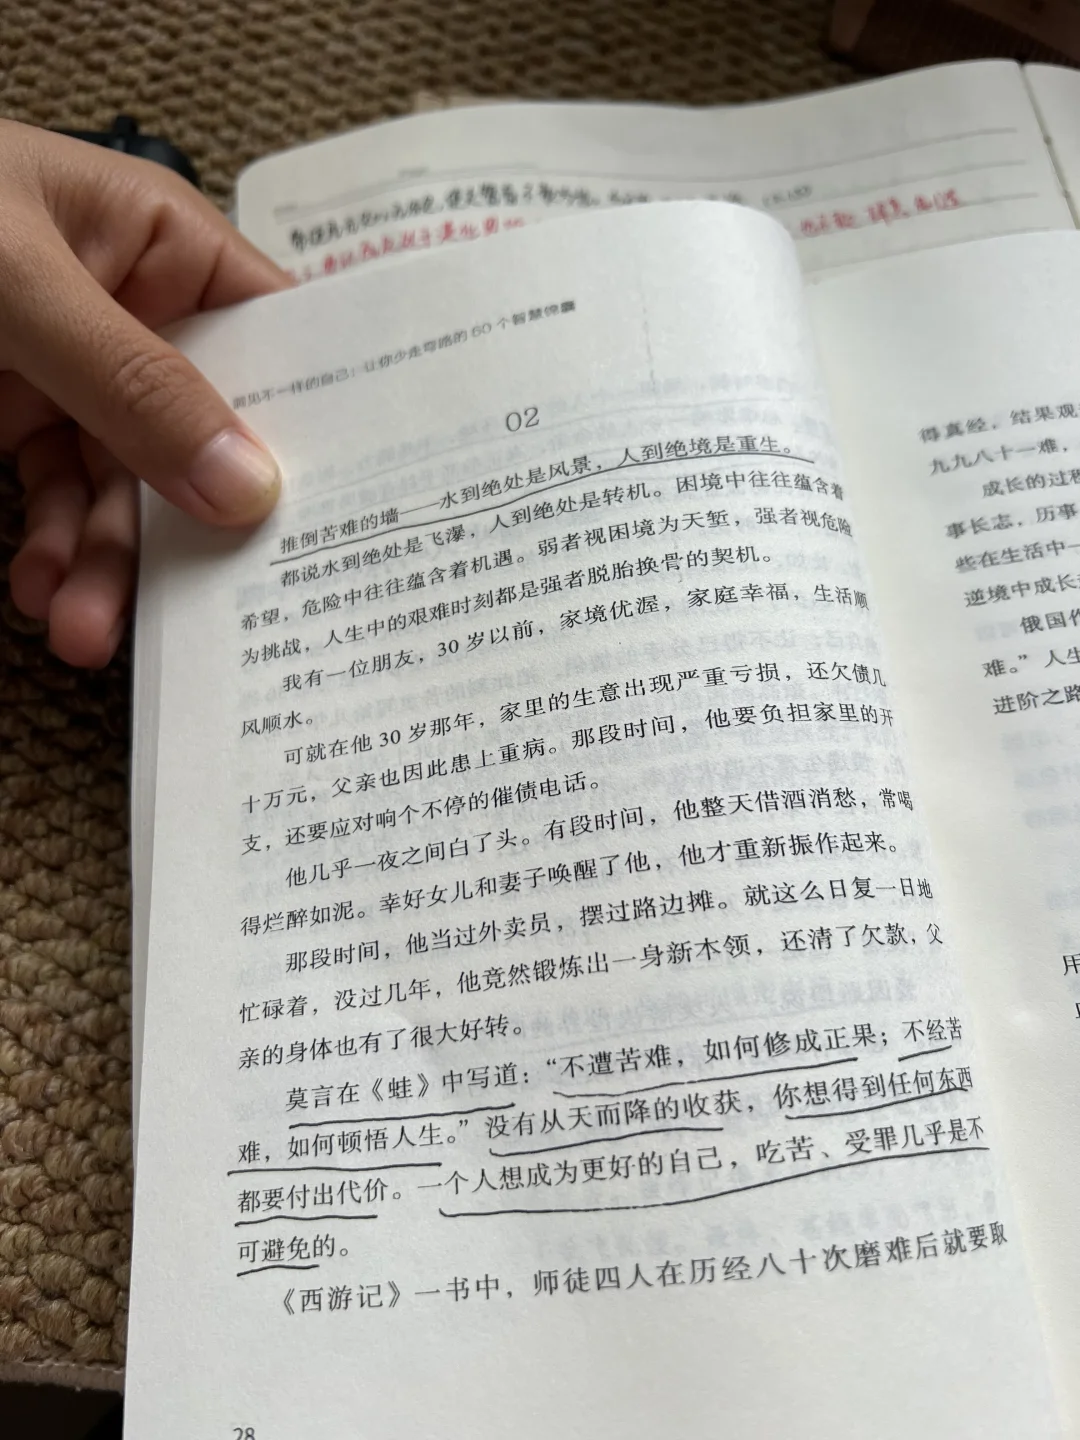 遇见不一样的自己：让你少走弯路的 60 个智慧锦囊
02
推倒苦难的墙——水到绝处是风景，人到绝境是重生。
都说水到绝处是飞瀑，人到绝处是转机。困境中往往蕴含着
希望，危险中往往蕴含着机遇。弱者视困境为天堑，强者视危险
为挑战，人生中的艰难时刻都是强者脱胎换骨的契机。
我有一位朋友，30 岁以前，家境优渥，家庭幸福，生活顺
风顺水。
可就在他 30 岁那年，家里的生意出现严重亏损，还欠债几
十万元，父亲也因此患上重病。那段时间，他要负担家里的开
支，还要应对响个不停的催债电话。
他几乎一夜之间白了头。有段时间，他整天借酒消愁，常喝
得烂醉如泥。幸好女儿和妻子唤醒了他，他才重新振作起来。
那段时间，他当过外卖员，摆过路边摊。就这么日复一日地
忙碌着，没过几年，他竟然锻炼出一身新木领，还清了欠款，父
亲的身体也有了很大好转。
莫言在《蛙》中写道：“不遭苦难，如何修成正果；不经苦
难，如何顿悟人生。”没有从天而降的收获，你想得到任何东西
都要付出代价。一个人想成为更好的自己，吃苦、受罪几乎是不
可避免的。
《西游记》一书中，师徒四人在历经八十次磨难后就要取
28
得真经，结果观
九九八十一难，
成长的过程
事长志，历事
些在生活中一
逆境中成长
俄国作
难。”人生
进阶之路
用